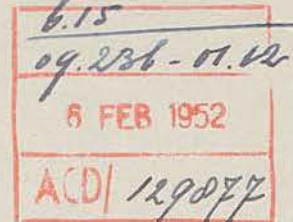 6.15
09.236-01.02
6 FEB 1952
ACD/ 129877